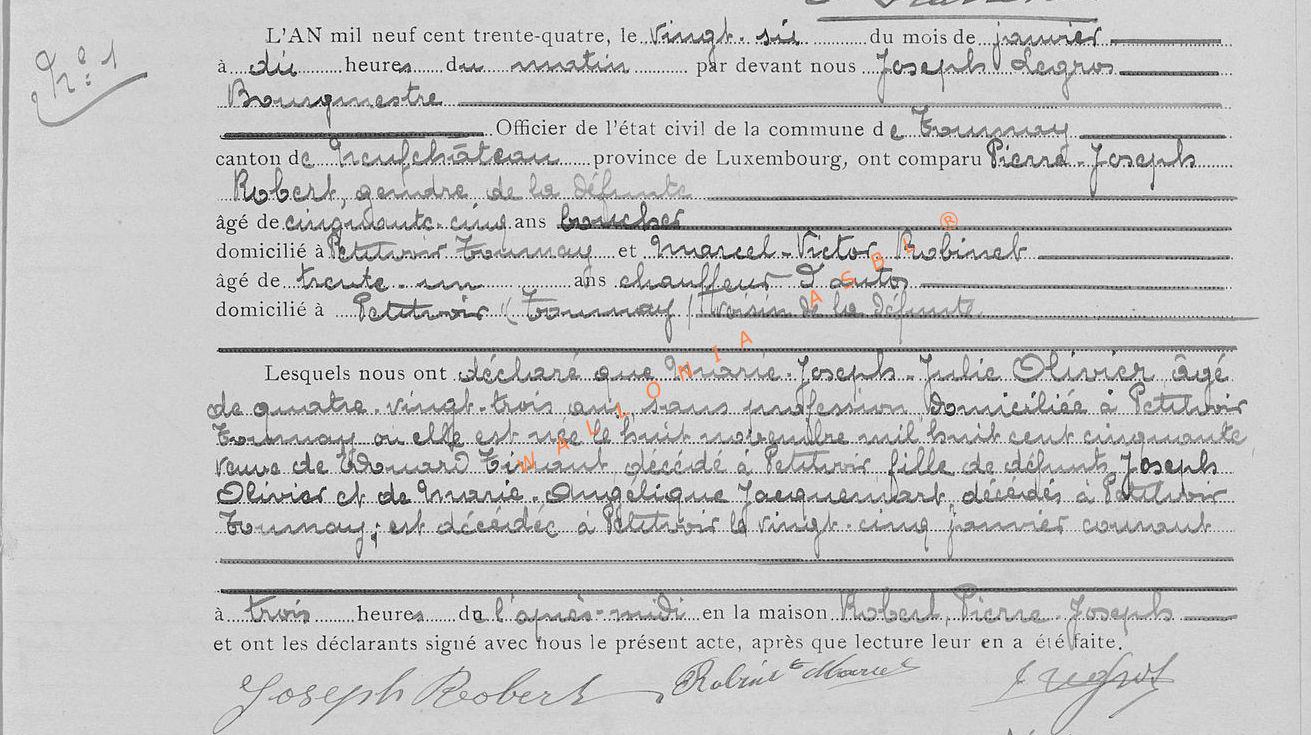 N° 1
L'AN mil neuf cent trente-quatre, le vingt-six du mois de janvier
à dix heures du matin par devant nous Joseph Legros
Bourgmestre
Officier de l'état civil de la commune de Tournay
canton de Neufchâteau province de Luxembourg, ont comparu Pierre-Joseph
Robert, gendre de la défunte
âgé de cinquante-cinq ans boucher
domicilié à Petitvoir Tournay et Marcel-Victor Robinet
âgé de trente-un ans chauffeur d'autos
domicilié à Petitvoir (Tournay) voisin de la défunte
Lesquels nous ont déclaré que Marie-Joseph-Julie Olivier âgé
de quatre-vingt-trois ans, sans profession domiciliée à Petitvoir
Tournay où elle est née le huit novembre mil huit cent cinquante
veuve de Edouard décédé à Petitvoir fille de défunts Joseph
Olivier et de Marie-Angélique Jacquemart décédés à Petitvoir
Tournay; est décédée à Petitvoir le vingt-cinq janvier courant
à trois heures de l'après-midi en la maison Robert, Pierre-Joseph
et ont les déclarants signé avec nous le présent acte, après que lecture leur en a été faite.
Joseph Robert Robinet Marcel J Legros
WALLONIA ASBL ®